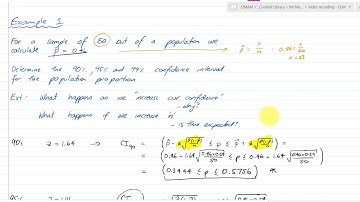 Example 1
For a sample of 50 out of a population we
calculate p̂ = 0.46
p̂ = x/n : 0.46 = x/50
x = 23
Determine the 90%, 95% and 99% confidence interval
for the population proportion
Ext: What happens as we "increase our confidence"
- why?
What happens if we increase 'n'
- is this expected?
90% z = 1.64 → CI90 = (p̂ - z√(p̂(1-p̂)/n) ≤ p ≤ p̂ + z√(p̂(1-p̂)/n))
= (0.46 - 1.64√(0.46×0.54/50) ≤ p ≤ 0.46 + 1.64√(0.46×0.54/50))
= (0.3444 ≤ p ≤ 0.5756)